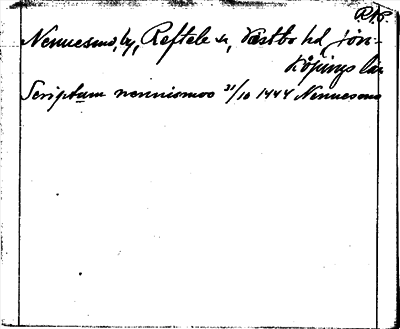 RAP.
Nennesmo, by, Reftele sn, Västbo hd, Jön-
köpings län
Scriptum nennismoo 31/10 1444 Nennesmo